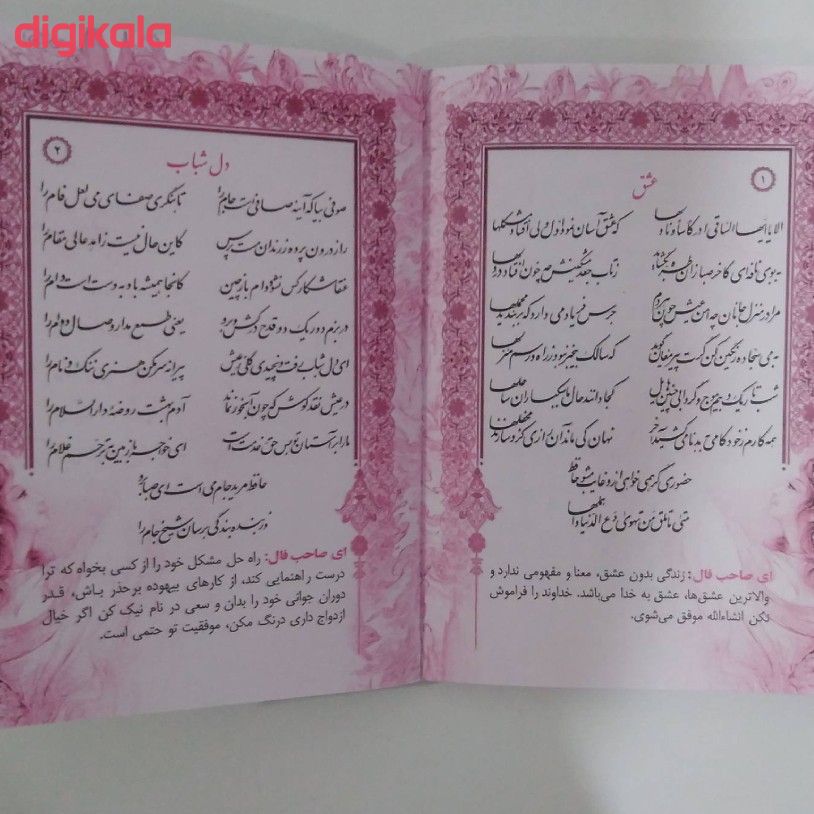 digikala
۱
عشق
الا یا ایها الساقی ادر کاسا و ناولها که عشق آسان نمود اول ولی افتاد مشکلها
به بوی نافه‌ای کاخر صبا زان طره بگشاید ز تاب جعد مشکینش چه خون افتاد در دلها
مرا در منزل جانان چه امن عیش چون هر دم جرس فریاد می دارد که بربندید محملها
به می سجاده رنگین کن گرت پیر مغان گوید که سالک بیخبر نبود ز راه و رسم منزلها
شب تاریک و بیم موج و گردابی چنین هایل کجا دانند حال ما سبکباران ساحلها
همه کارم ز خود کامی به بدنامی کشید آخر نهان کی ماند آن رازی کزو سازند محفلها
حضوری گر همی خواهی ازو غایب مشو حافظ
متی ما تلق من تهوی دع الدنیا و اهملها
ای صاحب فال: زندگی بدون عشق، معنا و مفهومی ندارد و
والاترین عشق‌ها، عشق به خدا می‌باشد. خداوند را فراموش
نکن انشاءالله موفق می‌شوی.
۲
دل شباب
صوفی بیا که آینه صافی است جام را تا بنگری صفای می لعل فام را
راز درون پرده ز رندان مست پرس کاین حال نیست زاهد عالی مقام را
عنقا شکار کس نشود دام باز چین کانجا همیشه باد به دست است دام را
در بزم دور یک دو قدح درکش و برو یعنی طمع مدار وصال دوام را
ای دل شباب رفت و نچیدی گلی ز عیش پیرانه سر مکن هنری ننگ و نام را
در عیش نقد کوش که چون آبخور نماند آدم بهشت روضه دارالسلام را
ما را بر آستان تو بس حق خدمت است ای خواجه باز بین به ترحم غلام را
حافظ مرید جام می است ای صبا برو
وز بنده بندگی برسان شیخ جام را
ای صاحب فال: راه حل مشکل خود را از کسی بخواه که ترا
درست راهنمایی کند، از کارهای بیهوده برحذر باش، قدر
دوران جوانی خود را بدان و سعی در نام نیک کن اگر خیال
ازدواج داری درنگ مکن، موفقیت تو حتمی است.